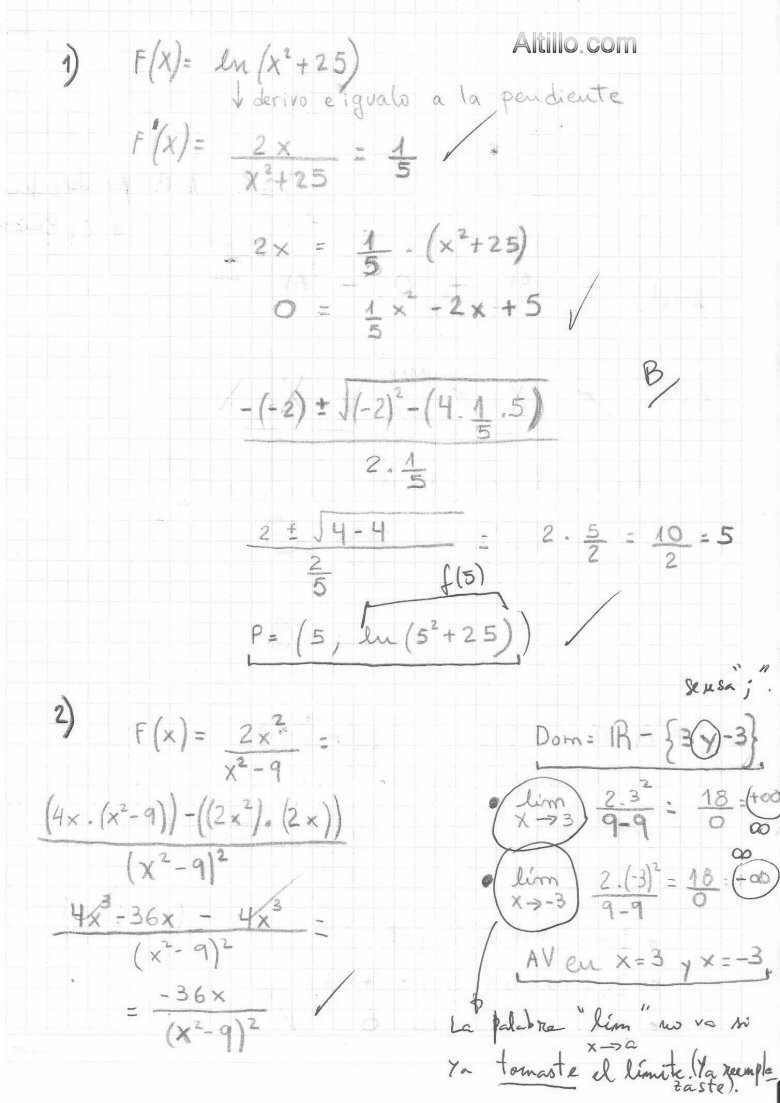 Altillo.com
1) F(x) = ln (x²+25)
↓ derivo e igualo a la pendiente
F'(x) = 2x / (x²+25) = 1/5 ✓
2x = 1/5 · (x²+25)
0 = 1/5 x² - 2x + 5 ✓
B
-(-2) ± √((-2)² - (4 · 1/5 · 5)) / (2 · 1/5)
2 ± √(4-4) / (2/5) = 2 · 5/2 = 10/2 = 5
f(5)
P = (5, ln (5²+25)) ✓
2) F(x) = 2x² / (x²-9) =
((4x · (x²-9)) - ((2x²) · (2x))) / (x²-9)²
(4x³ - 36x - 4x³) / (x²-9)² =
= -36x / (x²-9)² ✓
se usa ";".
Dom = ℝ - {3 y -3}
• lím x→3 2·3² / (9-9) = 18/0 = +∞
∞
∞
• lím x→-3 2·(-3)² / (9-9) = 18/0 = -∞
AV en x=3 y x=-3
La palabra "lím x→a" no va si
ya tomaste el límite. (Ya reempla-
zaste).